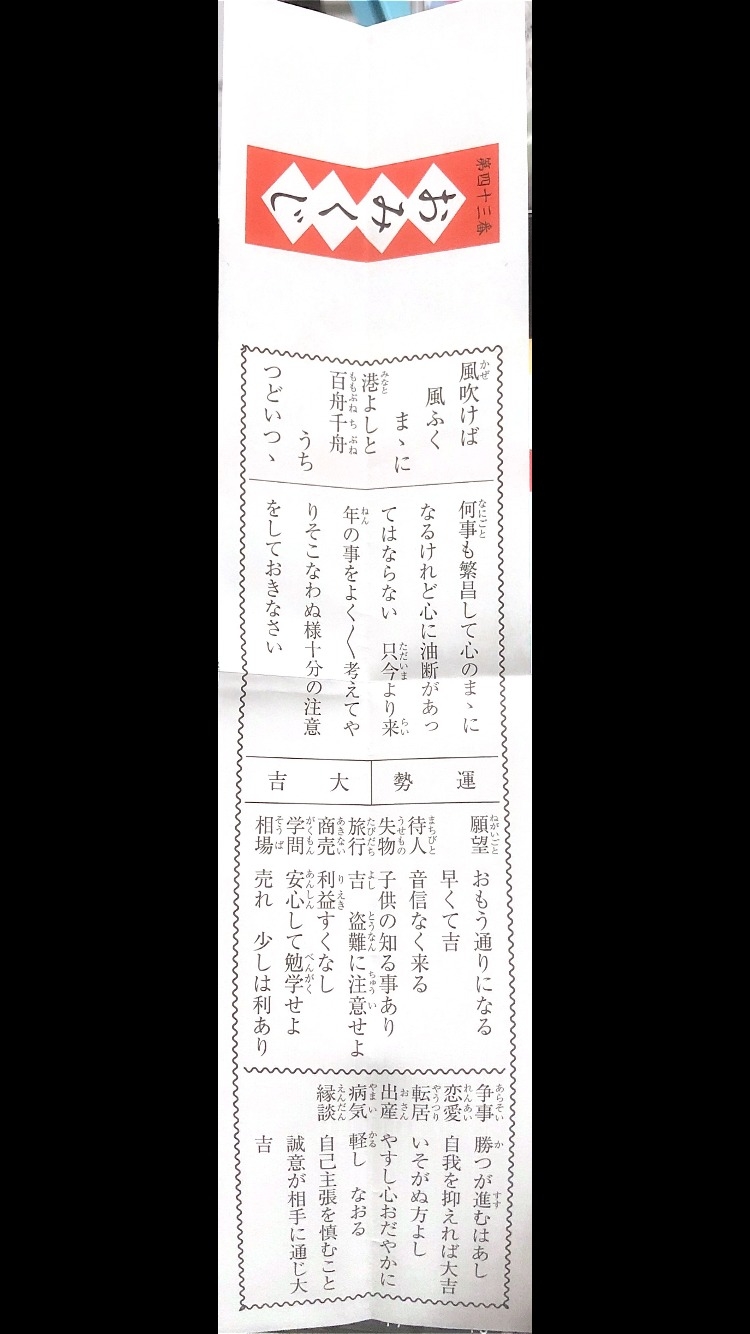 第四十三番
おみくじ
風吹けば
風ふく
まゝに
港よしと
百舟千舟
うち
つどいつゝ
何事も繁昌して心のまゝに
なるけれど心に油断があっ
てはならない 只今より来
年の事をよく〱考えてや
りそこなわぬ様十分の注意
をしておきなさい
運勢
大吉
願望 おもう通りになる
早くて吉
待人 音信なく来る
失物 子供の知る事あり
旅行 吉 盗難に注意せよ
商売 利益すくなし
学問 安心して勉学せよ
相場 売れ 少しは利あり
争事 勝つが進むはあし
恋愛 自我を抑えれば大吉
転居 いそがぬ方よし
出産 やすし心おだやかに
病気 軽し なおる
縁談 自己主張を慎むこと
誠意が相手に通じ大
吉